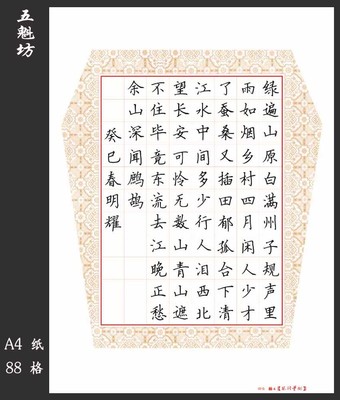 五魁坊
绿遍山原白满州子规声里
雨如烟乡村四月闲人少才
了蚕桑又插田郁孤台下清
江水中间多少行人泪西北
望长安可怜无数山青山遮
不住毕竟东流去江晚正愁
余山深闻鹧鸪
癸巳春明耀
A4 纸
88 格